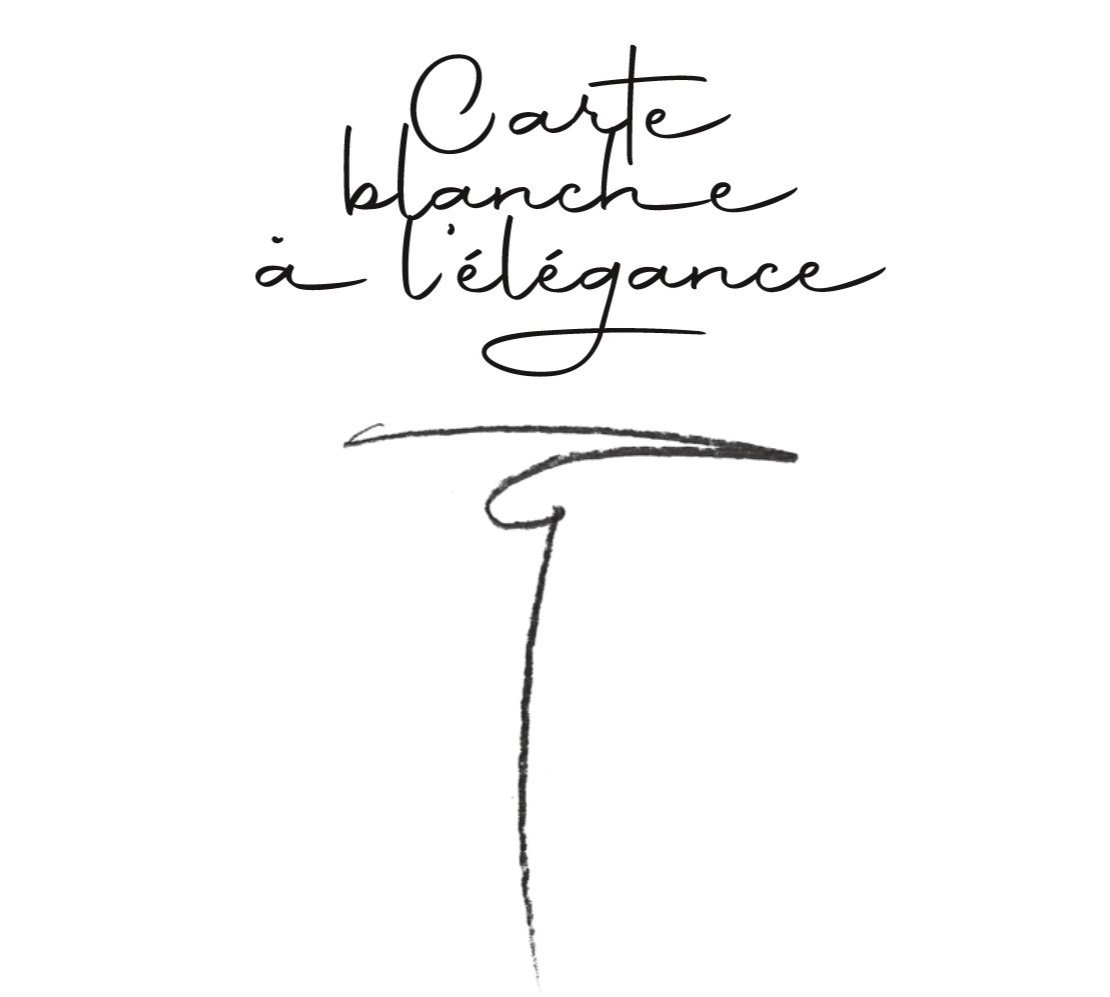 Carte
blanche
à l'élégance
T